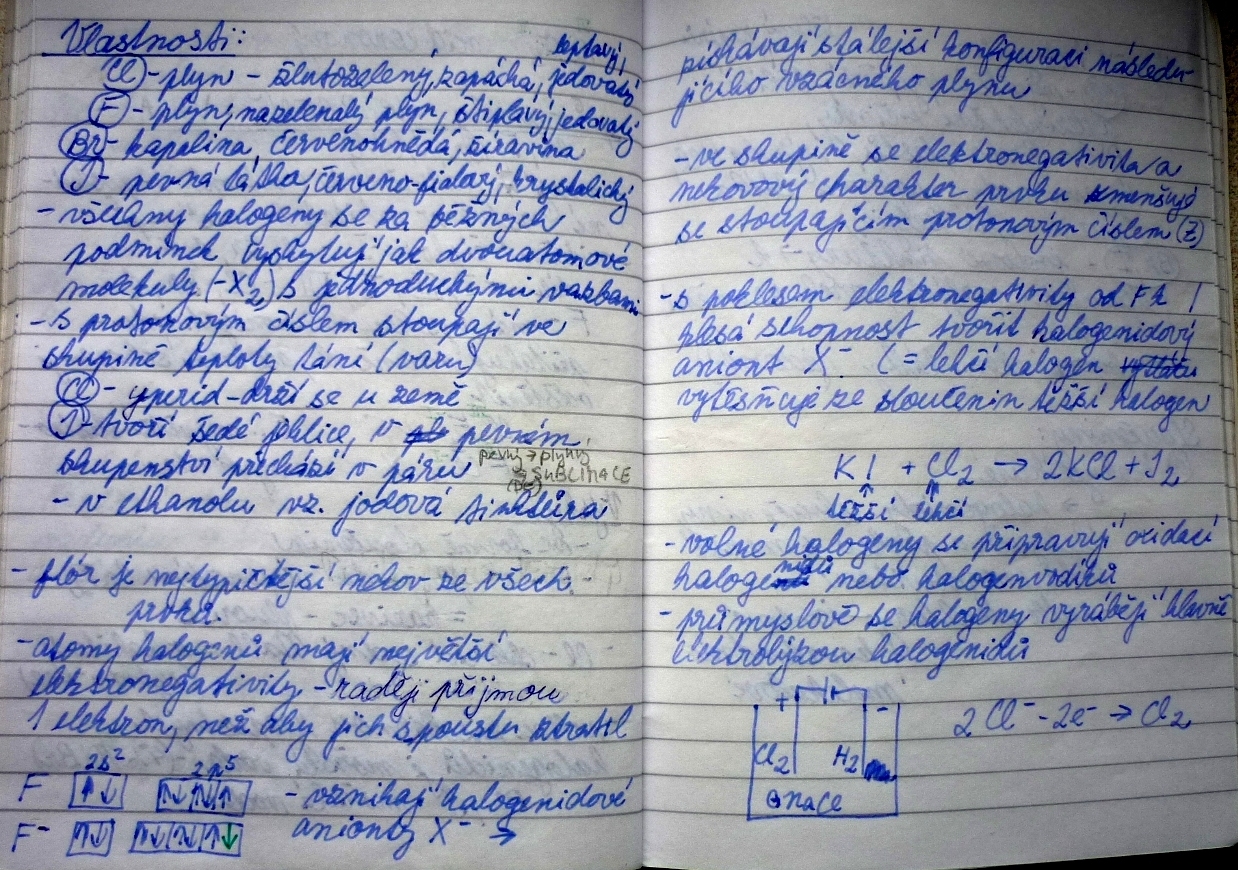 Vlastnosti:
leptavý,
Cl - plyn - žlutozelený, zapáchá, jedovatý
F - plyn, nazelenalý plyn, štiplavý, jedovatý
Br - kapalina, červenohnědá, žíravina
I - pevná látka, červeno-fialový, krystalický
- všechny halogeny se za běžných
podmínek vyskytují jak dvouatomové
molekuly (-X2) s jednoduchými vazbami
- s protonovým číslem stoupají ve
skupině teploty tání (varu)
Cl - yperid - drží se u země
I - tvoří šedé jehlice, v pevném
skupenství přechází v páru pevný → plynný
= SUBLIMACE
- v ethanolu vz. jodová tinktura
- flór je nejtypičtější nekov ze všech
prvků.
- atomy halogenů mají největší
elektronegativity - raději příjmou
1 elektron, než aby jich spoustu ztratil
2s² 2p⁵
F ↑↓ ↑↓ ↑↓ ↑ - vznikají halogenidové
F⁻ ↑↓ ↑↓ ↑↓ ↑↓ anionty X⁻ →
získávají stálejší konfiguraci násled
jícího vzácného plynu
- ve skupině se elektronegativita a
nekovový charakter prvku zmenšují
se stoupajícím protonovým číslem (Z)
- s poklesem elektronegativity od F k I
klesá schopnost tvořit halogenidový
aniont X⁻. (= lehčí halogen
vytěsňuje ze sloučenin těžší halogen
KI + Cl2 → 2KCl + I2
těžší lehčí
- volné halogeny se připravují oxidací
halogenidů nebo halogenvodíků
- průmyslově se halogeny vyrábějí hlavně
elektrolýzou halogenidů
+ -
Cl2 H2
NaCl
2Cl⁻ - 2e⁻ → Cl2